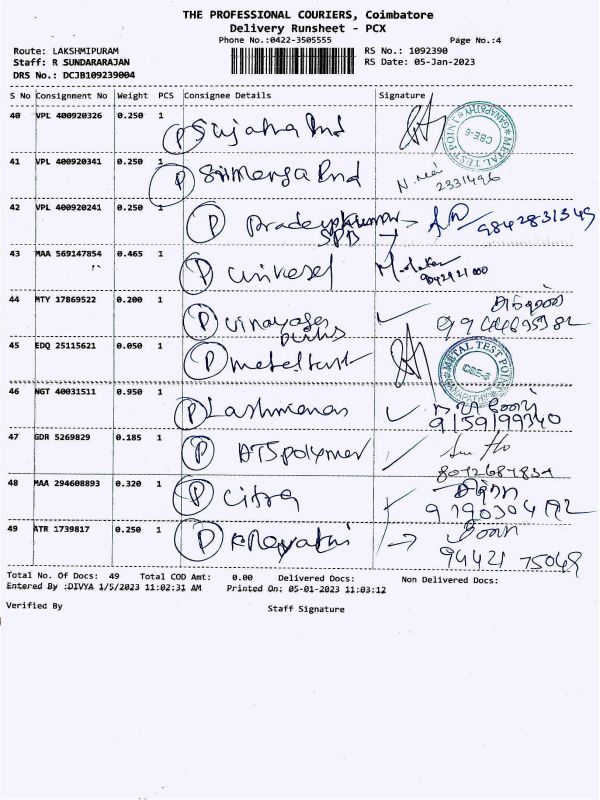 THE PROFESSIONAL COURIERS, Coimbatore
Delivery Runsheet - PCX
Phone No.:0422-3505555 Page No.:4
Route: LAKSHMIPURAM RS No.: 1092390
Staff: R SUNDARARAJAN RS Date: 05-Jan-2023
DRS No.: DCJB109239004
S No Consignment No Weight PCS Consignee Details Signature
40 VPL 400920326 0.250 1 P Sujatha Ind
METAL TEST POINT GANAPATHY CBE-6
41 VPL 400920341 0.250 1 P Ind
2331496
42 VPL 400920241 0.250 1 P Pradeepkumar
SPB 9842831349
43 MAA 569147854 0.465 1 P Universel
44 MTY 17869522 0.200 1 P Vinayaga
45 EDQ 25115621 0.050 1 P metel test
METAL TEST POINT GANAPATHY CBE-6
46 NGT 40031511 0.950 1 P
9159199340
47 GDR 5269829 0.185 1 P ATS polymer
48 MAA 294608893 0.320 1 P Citra
49 ATR 1739817 0.250 1 P
94421 75048
Total No. Of Docs: 49 Total COD Amt: 0.00 Delivered Docs: Non Delivered Docs:
Entered By :DIVYA 1/5/2023 11:02:31 AM Printed On: 05-01-2023 11:03:12
Verified By Staff Signature